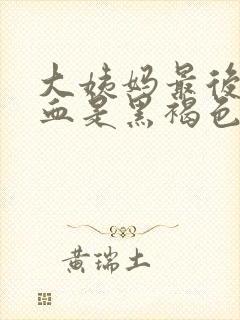 大姨妈最後
血是黑褐色
黄瑞土